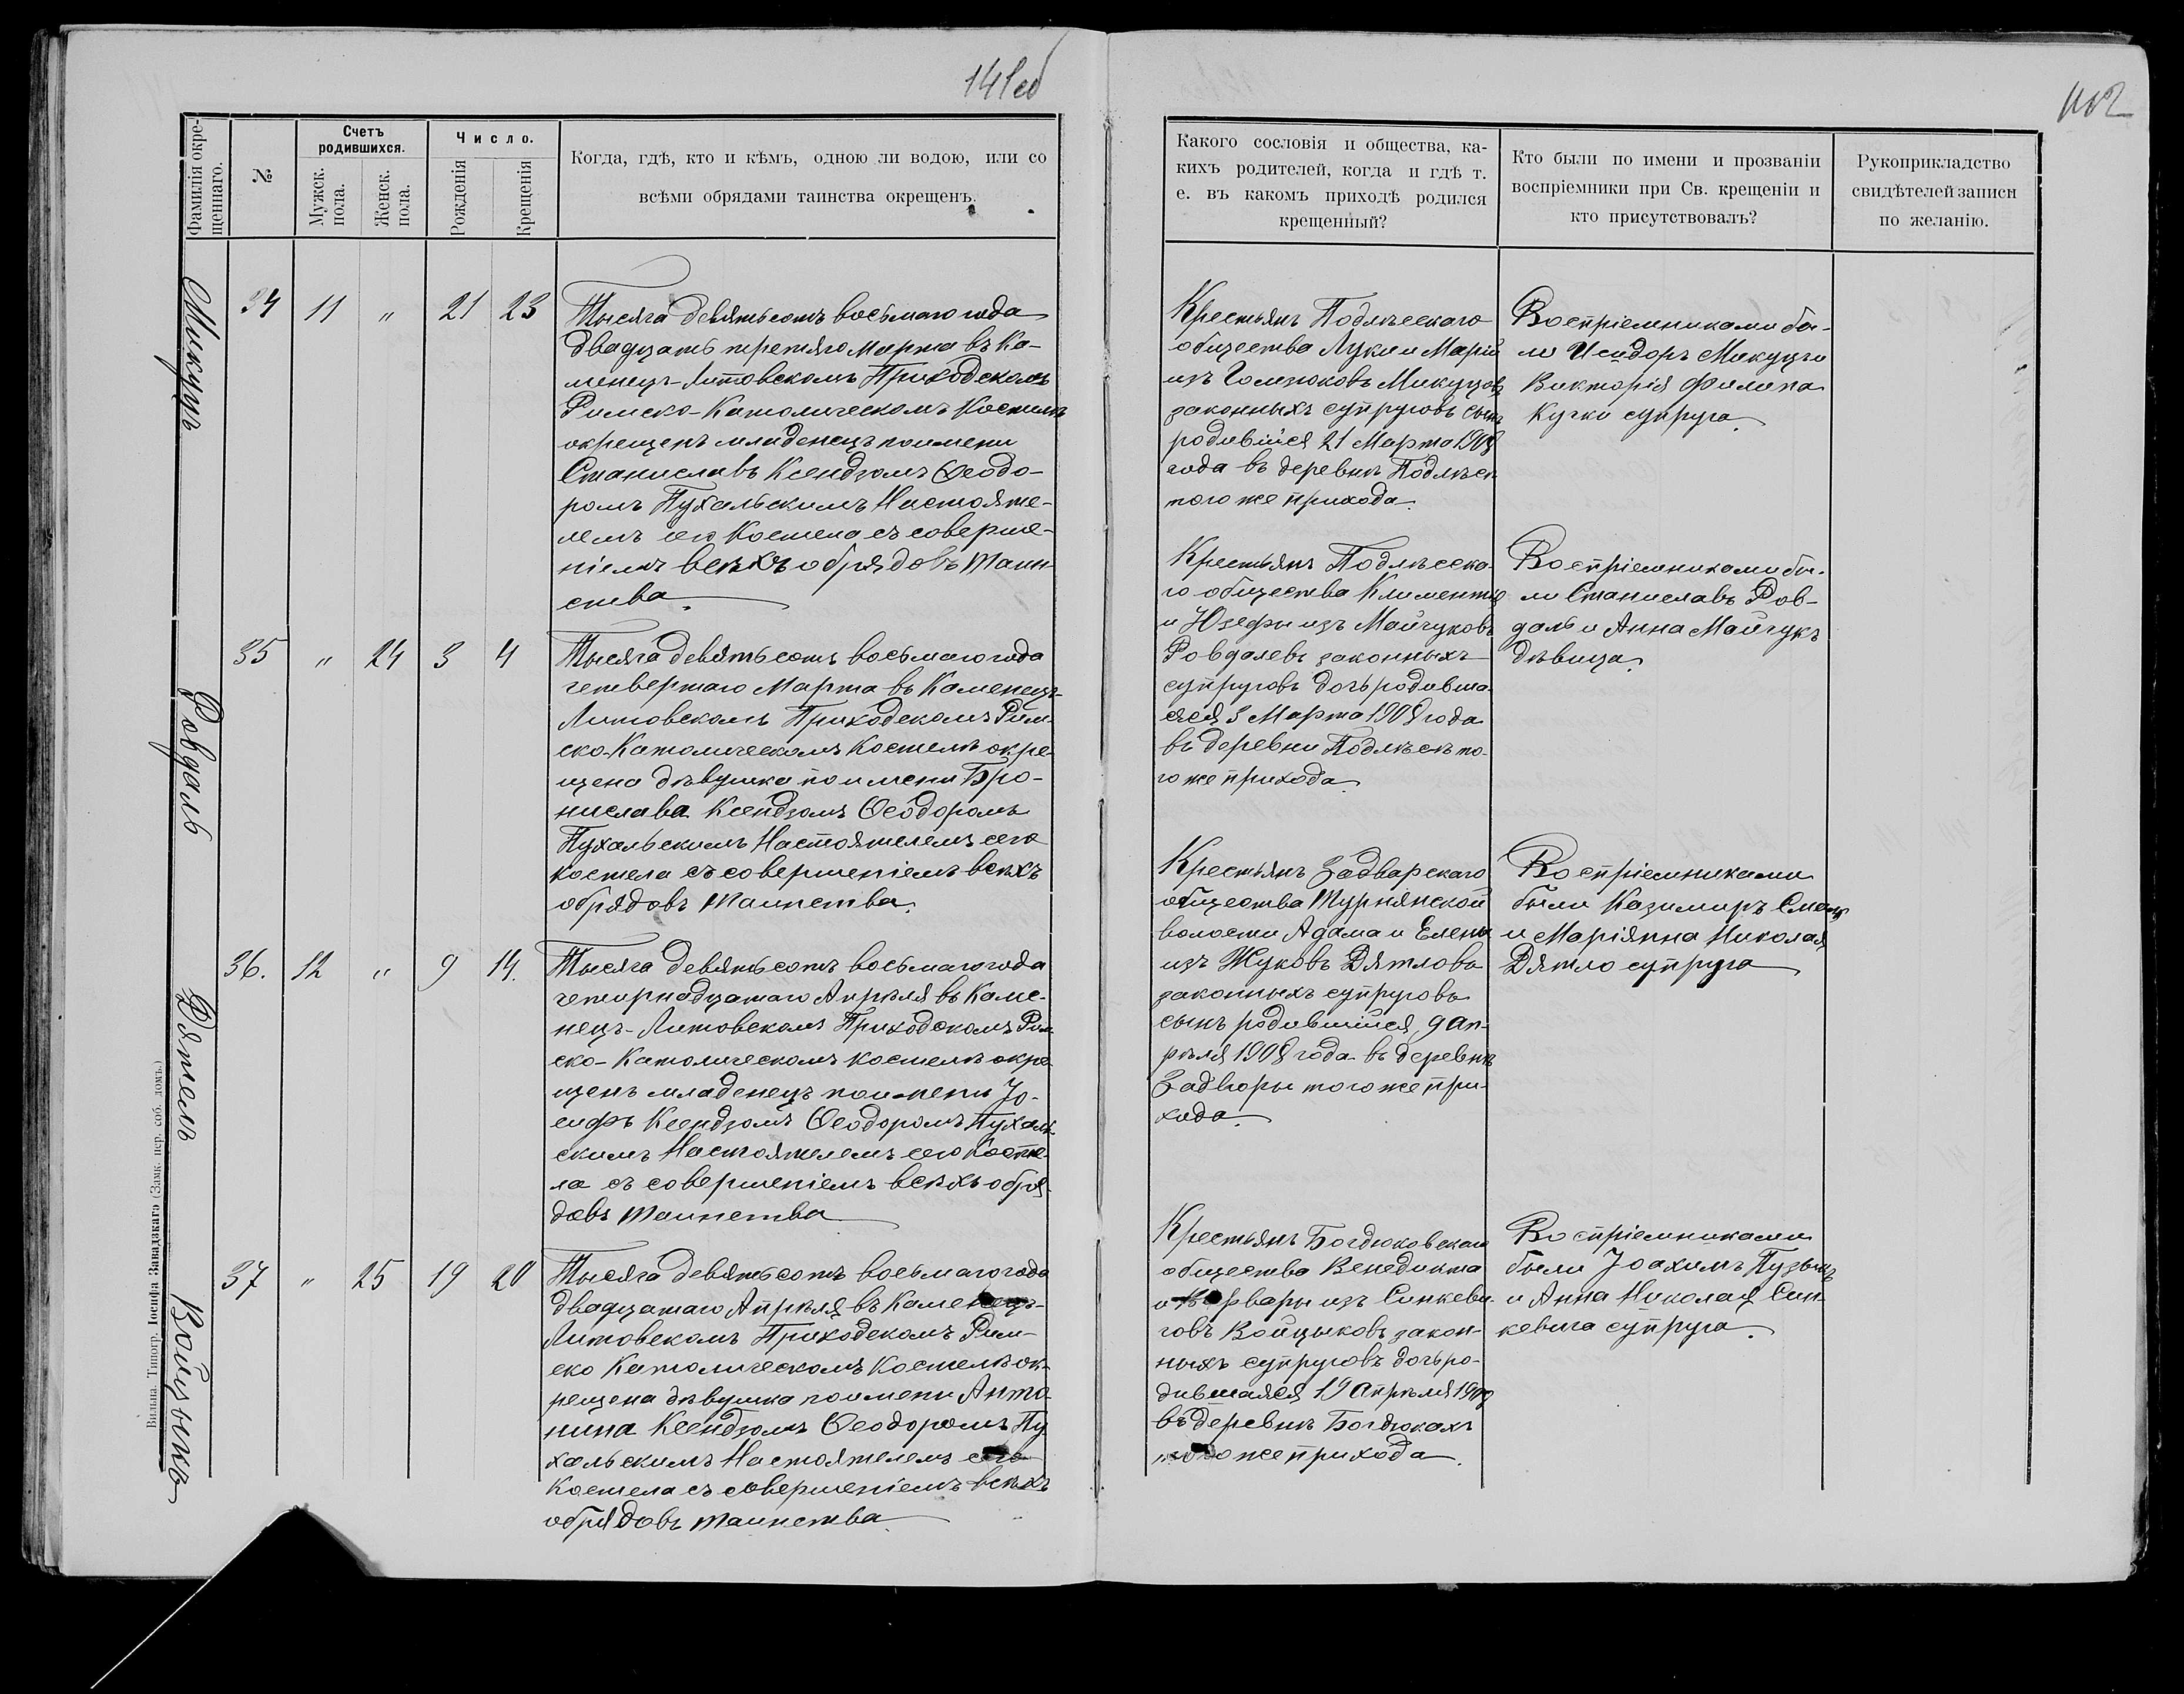 141об
142
Фамилія окре-
щеннаго.
№
Счетъ
родившихся.
Мужск.
пола.
Женск.
пола.
Число.
Рожденія
Крещенія
Когда, гдѣ, кто и кѣмъ, одною ли водою, или со
всѣми обрядами таинства окрещенъ.
Какого сословія и общества, ка-
кихъ родителей, когда и гдѣ т.
е. въ какомъ приходѣ родился
крещенный?
Кто были по имени и прозванію
воспріемники при Св. крещеніи и
кто присутствовалъ?
Рукоприкладство
свидѣтелей записи
по желанію.
Микуцъ
34 11 " 21 23
Тысяча девятьсотъ восьмаго года
двадцать третяго Марта въ Ка-
менецъ-Литовскомъ Приходскомъ
Римско-Католическомъ Костелѣ
окрещенъ младенецъ по имени
Станиславъ Ксендзомъ Ѳеодо-
ромъ Пухальскимъ Настояте-
лемъ сего Костела съ соверше-
ніемъ всѣхъ обрядовъ Таин-
ства.
Крестьянъ Подлѣсскаго
общества Луки и Маріи
изъ Голензюковъ Микуцовъ
законныхъ супруговъ сынъ
родившійся 21 Марта 1908
года въ деревнѣ Подлѣсъ
того же прихода.
Воспріемниками бы-
ли Исидоръ Микуцъ и
Викторія Филипа
Кучки супруга.
Ровдаль
35 " 24 3 4
Тысяча девятьсотъ восьмаго года
четвертаго Марта въ Каменецъ-
Литовскомъ Приходскомъ Рим-
ско-Католическомъ Костелѣ окре-
щена дѣвушка по имени Бро-
нислава Ксендзомъ Ѳеодоромъ
Пухальскимъ Настоятелемъ сего
костела съ совершеніемъ всѣхъ
обрядовъ Таинства.
Крестьянъ Подлѣсска-
го общества Климентія
и Юзефы изъ Майчуковъ
Ровдалевъ законныхъ
супруговъ дочь родивша-
яся 3 Марта 1908 года
въ деревни Подлѣсѣ то-
го же прихода.
Воспріемниками бы-
ли Станиславъ Ров-
даль и Анна Майчукъ
дѣвица.
Дятелъ
36. 12 " 9 14.
Тысяча девятьсотъ восьмаго года
четырнадцатаго Апрѣля въ Каме-
нецъ-Литовскомъ Приходскомъ Рим-
ско-Католическомъ костелѣ окре-
щенъ младенецъ по имени Іо-
сифъ Ксендзомъ Ѳеодоромъ Пухаль-
скимъ Настоятелемъ сего Косте-
ла съ совершеніемъ всѣхъ обря-
довъ таинства
Крестьянъ Задварскаго
общества Турнянской
волости Адама и Елены
изъ Жуковъ Дятлова
законныхъ супруговъ
сынъ родившійся 9 Ап-
рѣля 1908 года въ деревнѣ
Задворы того же при-
хода.
Воспріемниками
были Казимиръ
и Маріянна Николая
Дятло супруга
Войцыкъ
37 " 25 19 20
Тысяча девятьсотъ восьмаго года
двадцатаго Апрѣля въ Каменецъ-
Литовскомъ Приходскомъ Рим-
ско Католическомъ Костелѣ ок-
рещена дѣвушка по имени Анто-
нина Ксендзомъ Ѳеодоромъ Пу-
хальскимъ Настоятелемъ сего
Костела съ совершеніемъ всѣхъ
обрядовъ таинства
Крестьянъ Богдюковскаго
общества Венедикта
и Варвары изъ Синкеви-
човъ Войцыковъ закон-
ныхъ супруговъ дочь ро-
дившаяся 19 Апрѣля 1908
въ деревнѣ Богдюкахъ
того же прихода.
Воспріемниками
были Іоахимъ Пузыкъ
и Анна Николая Син-
кевича супруга.
Вильна. Типогр. Іосифа Завадзкаго (Замк. пер. соб. домъ.)